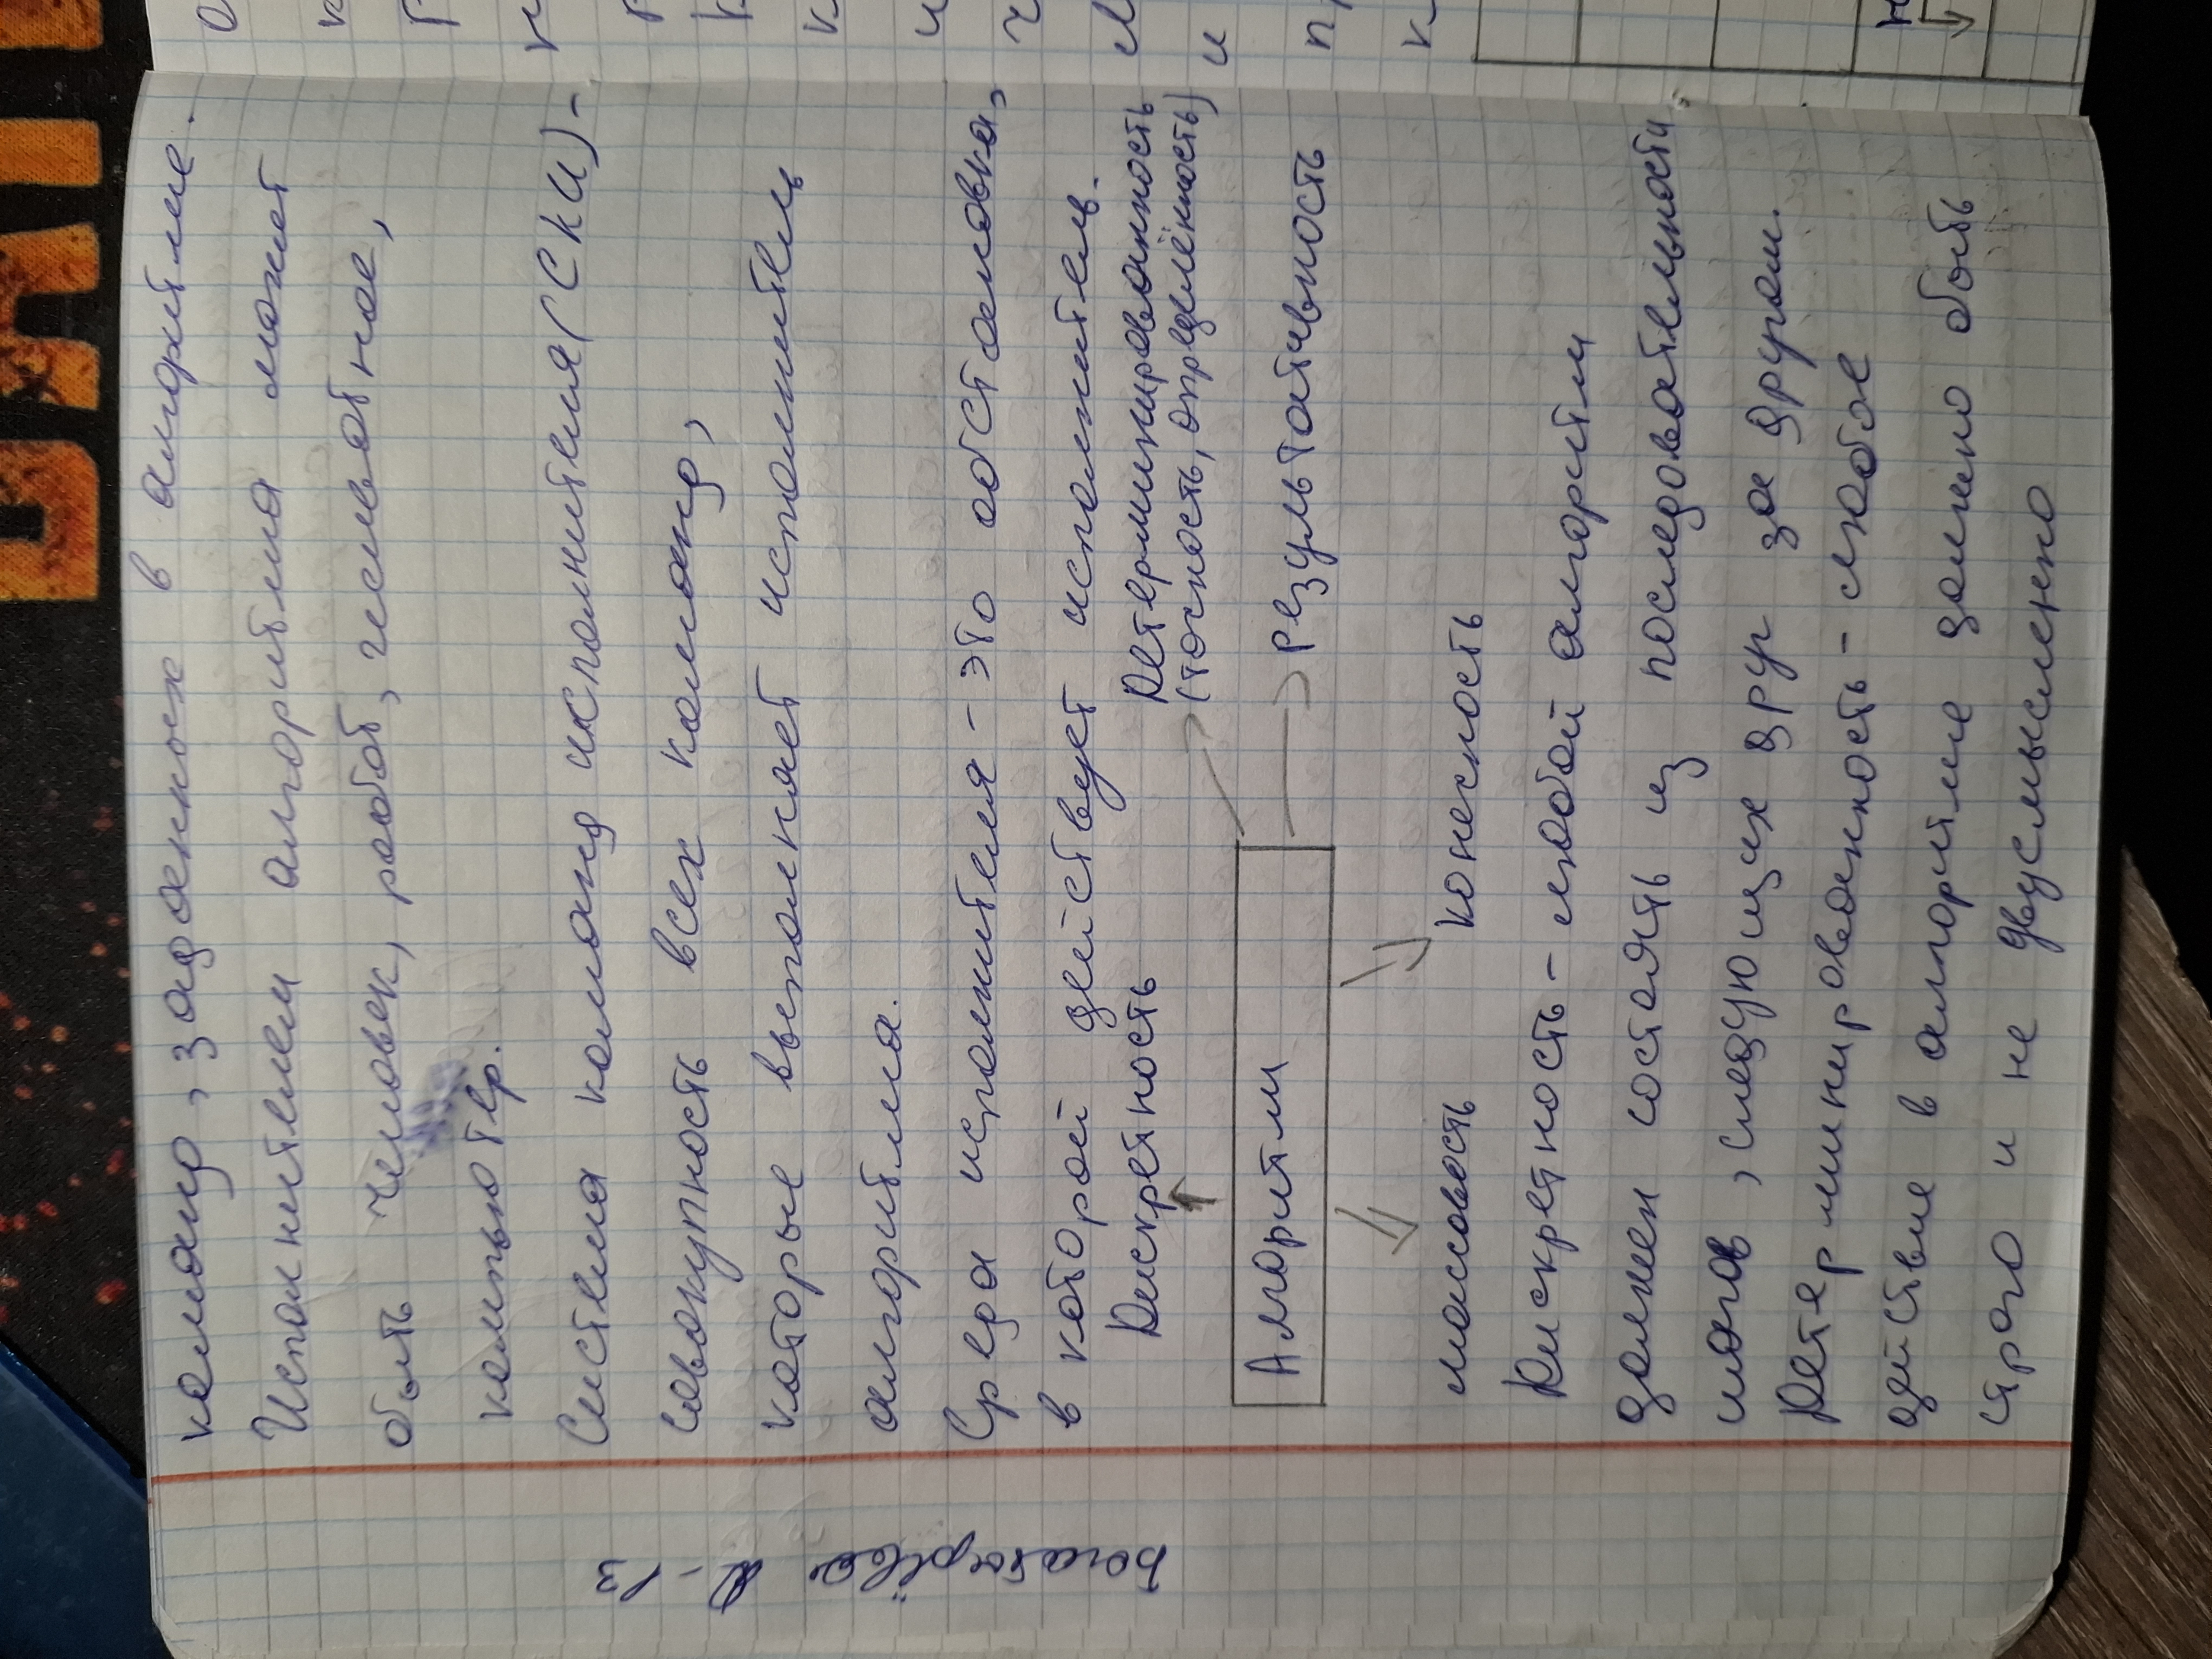 команд, заданных в алгоритме.
Исполнителем алгоритма может
быть человек, робот, животное,
компьютер.
Система команд исполнителя (СКИ) -
совокупность всех команд,
которые выполняет исполнитель
алгоритма.
Среда исполнителя - это обстановка,
в которой действует исполнитель.
Дискретность Детерминированность
(точность, определённость)
Алгоритм результативность
массовость конечность
Дискретность - любой алгоритм
должен состоять из последовательности
шагов, следующих друг за другом.
Детерминированность - любое
действие в алгоритме должно быть
строго и не двусмысленно